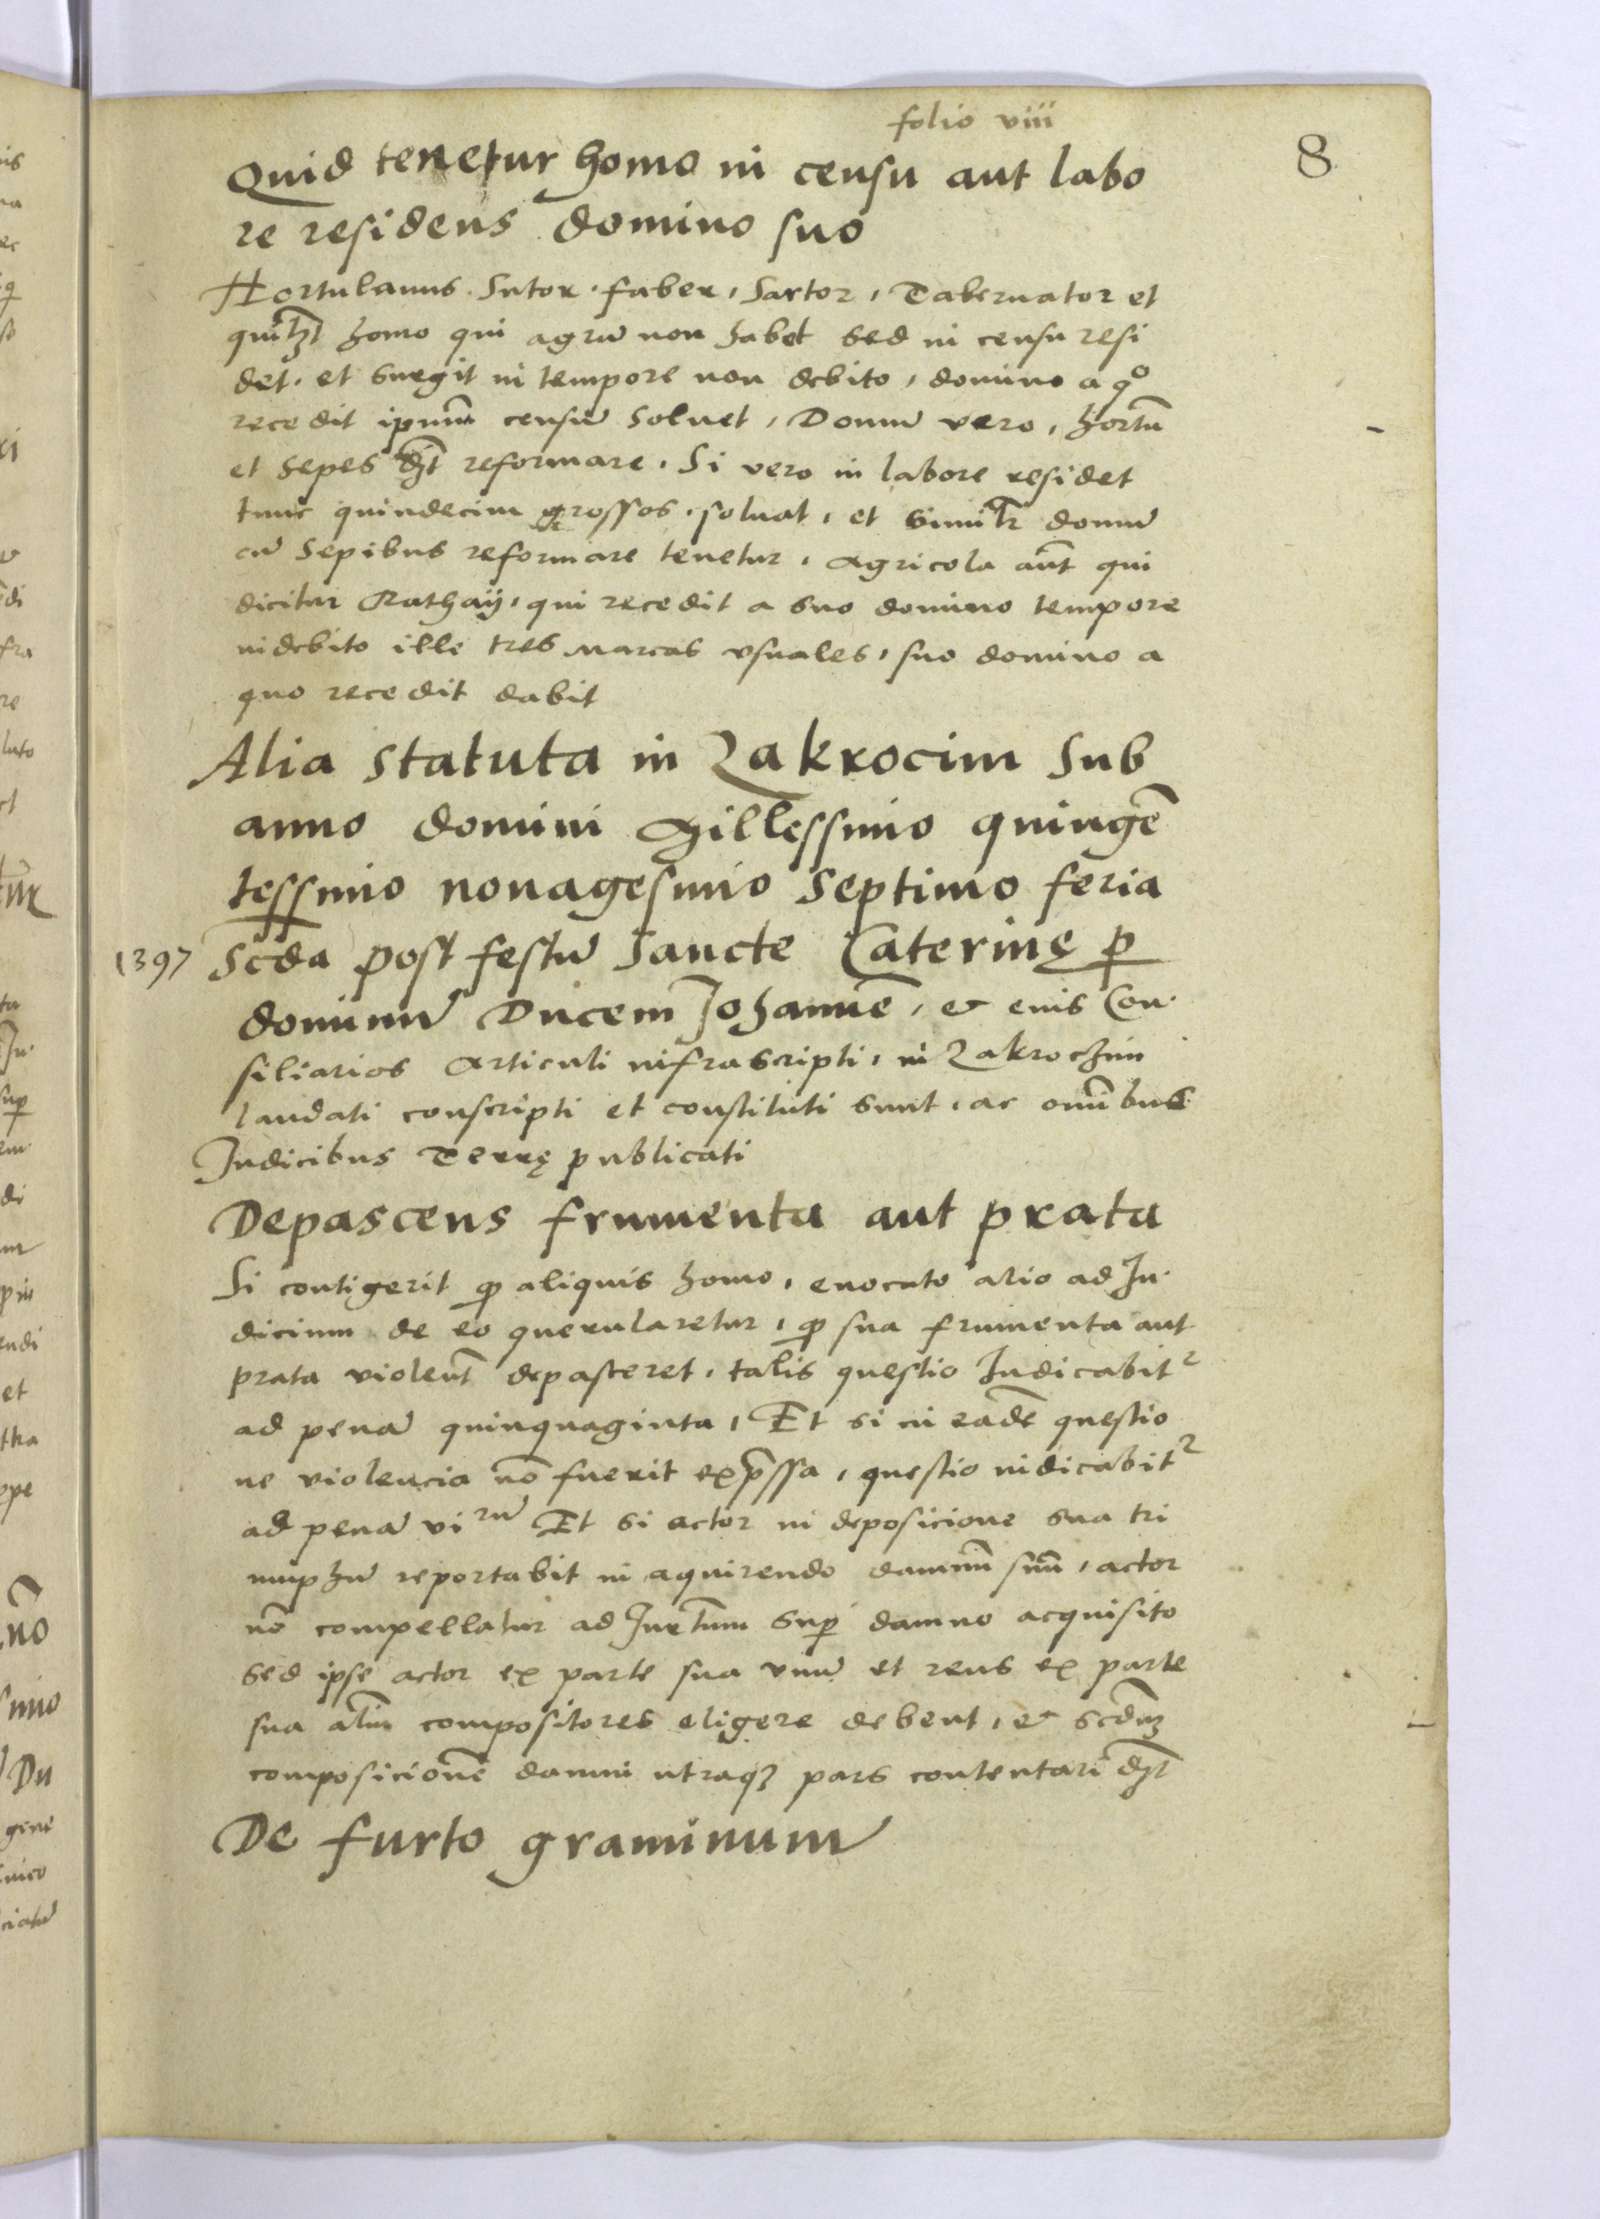 folio viii
8
Quid tenetur homo in censu aut labo
re residens domino suo
Hortulanus. Sutor. faber, Sartor, Tabernator et
homo qui agrū non habet sed in censu resi
det. et surgit in tempore non debito, domino a qº
recedit ipsum̄ censū soluet, Domū vero, hortū
et sepes reformare. Si vero in labore residet
tunc quindecim grossos. soluat, et simil̄r domū
cū sepibus reformare tenetur, Agricola aūt qui
dicitur Rathaij, qui recedit a suo domino tempore
indebito ille tres marcas vsuales, suo domino a
quo recedit dabit
Alia statuta in Zakrocim sub
anno domini Millessimo quingē
tessimo nonagesimo septimo feria
1397
Scda post festū Sancte Caterinę ꝑ
dominū Ducem Johannē, et eius Con.
siliarios Articuli infrascripti, in Zakrochim
laudati conscripti et constituti sunt, ac omībus
Judicibus Terrę publicati
Depascens frumenta aut prata
Si contigerit ꝙ aliquis homo, euocato alio ad Ju.
dicium de eo querularetur, ꝙ sua frumenta aut
prata violent̄ depasceret, talis questio Judicabit᷑
ad penā quinquaginta, Et si in eadē questio
ne violencia nō fuerit exp̄ssa, questio iudicabit᷑
ad penā vi rū Et si actor in deposicione sua tri
umphū reportabit in aquirendo damnū suū, actor
nō compellatur ad Jur̄tum suꝑ damno acquisito
sed ipse actor ex parte sua vnū et reus ex parte
sua aliū compositores eligere debent, et scd̄m
composicionē damni utraqꝫ pars contentari dꝫt
De furto graminum